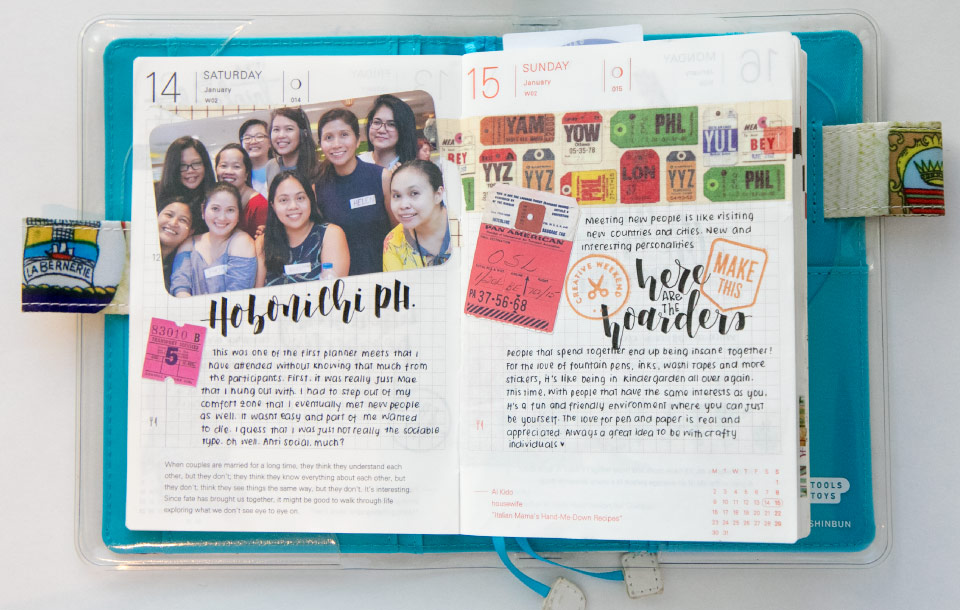 14
SATURDAY
January
W02
014
HELEN
Hobonichi PH.
83010 B
5
This was one of the first planner meets that I
have attended without knowing that much from
the participants. First, it was really just Mae
that I hung out with. I had to step out of my
comfort zone that I eventually met new people
as well. It wasnt easy and part of me wanted
to die. I guess that I was just not really the sociable
type. Oh well. Anti social, much?
When couples are married for a long time, they think they understand each
other, but they don't; they think they know everything about each other, but
they don't; think they see things the same way, but they don't. It's interesting.
Since fate has brought us together, it might be good to walk through life
exploring what we don't see eye to eye on.
LA BERNERIE
15
SUNDAY
January
W02
015
YAM
YOW
Ottawa
05-35-78
PHL
YUL
BEY
BEY
YYZ
YYZ
PHL
LON
YYZ
PHL
PAN AMERICAN
OSL
PA 37-56-68
Meeting new people is like visiting
new countries and cities. New and
interesting personalities
CREATIVE WEEKEND
MAKE
THIS
here
ARE
THE
hoarders
People that spend together end up being insane together!
For the love of fountain pens, inks, washi tapes and more
stickers, it's like being in kindergarden all over again.
This time, with people that have the same interests as you.
It's a fun and friendly environment where you can just
be yourself. The love for pen and paper is real and
appreciated. Always a great idea to be with crafty
individuals ♥
Ai Kido
housewife
"Italian Mama's Hand-Me-Down Recipes"
M T W T F S S
1
2 3 4 5 6 7 8
9 10 11 12 13 14 15
16 17 18 19 20 21 22
23 24 25 26 27 28 29
30 31
TOOLS
TOYS
SHINBUN